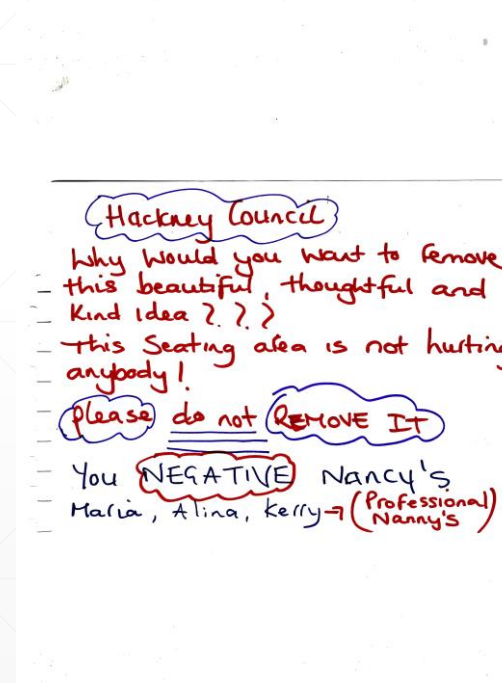 Hackney Council
Why would you want to remove
this beautiful, thoughtful and
Kind idea ? ? ?
This Seating area is not hurting
anybody!
Please do not REMOVE IT
You NEGATIVE Nancy's
Maria, Alina, Kerry → (Professional
Nanny's)